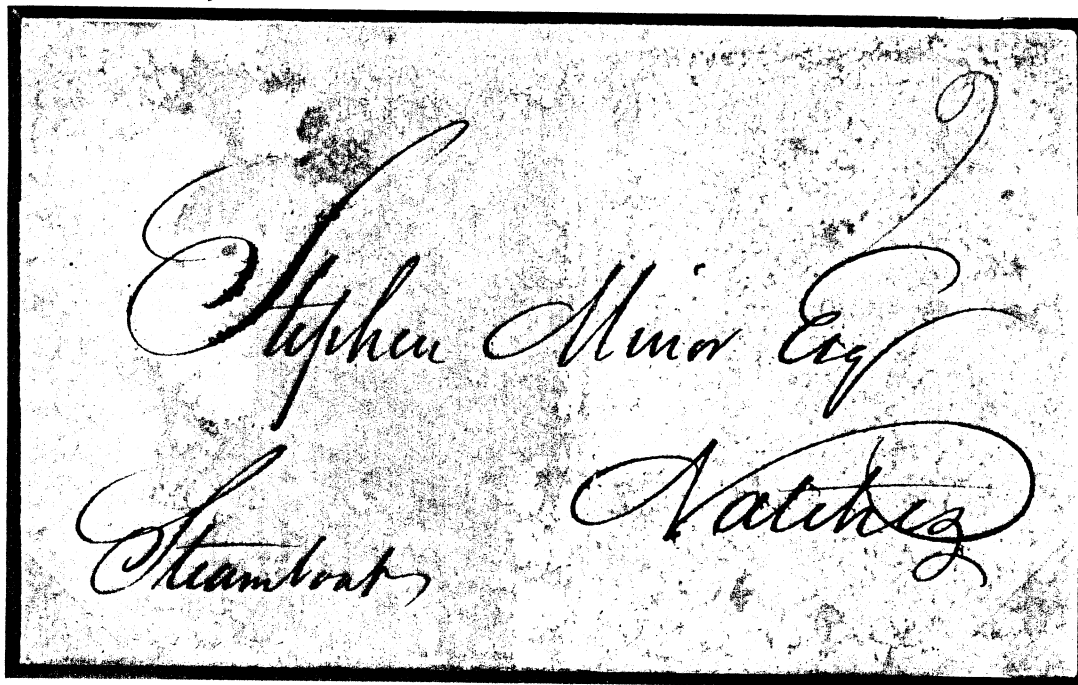 Stephen Minor Esq
Natchez
Steamboat